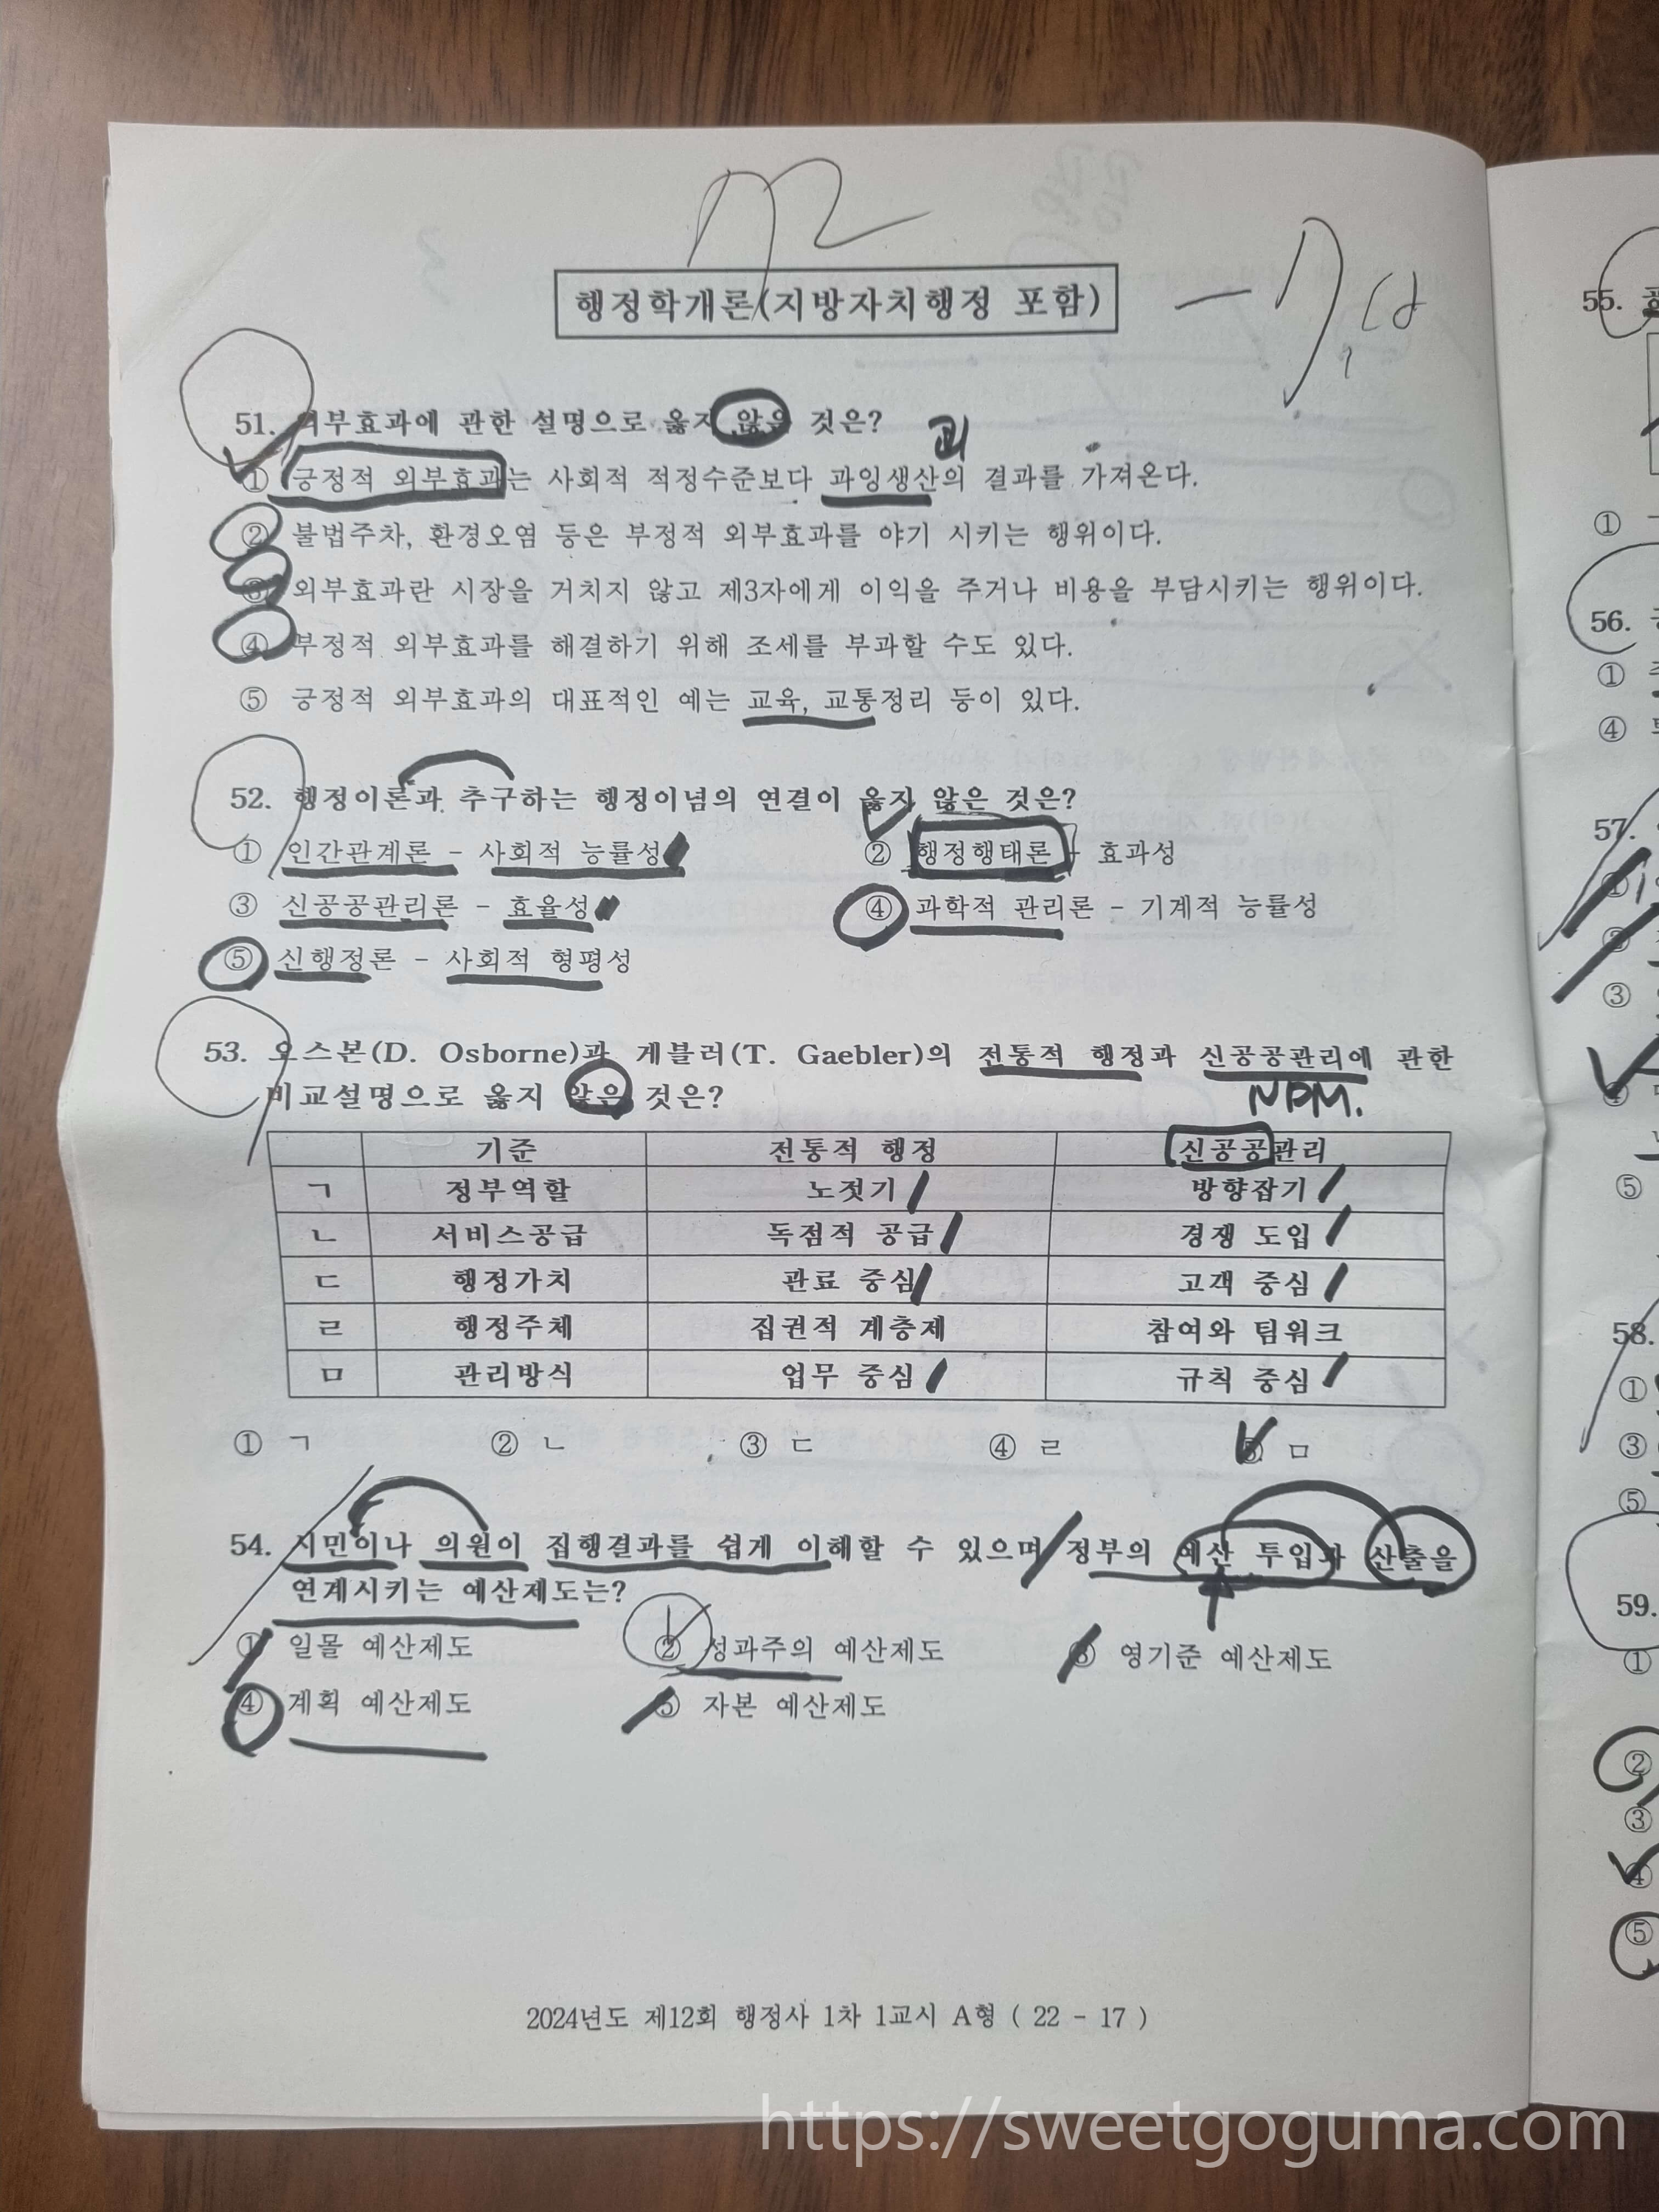 행정학개론(지방자치행정 포함)
51. 외부효과에 관한 설명으로 옳지 않은 것은?
과
① 긍정적 외부효과는 사회적 적정수준보다 과잉생산의 결과를 가져온다.
② 불법주차, 환경오염 등은 부정적 외부효과를 야기 시키는 행위이다.
③ 외부효과란 시장을 거치지 않고 제3자에게 이익을 주거나 비용을 부담시키는 행위이다.
④ 부정적 외부효과를 해결하기 위해 조세를 부과할 수도 있다.
⑤ 긍정적 외부효과의 대표적인 예는 교육, 교통정리 등이 있다.
52. 행정이론과 추구하는 행정이념의 연결이 옳지 않은 것은?
① 인간관계론 - 사회적 능률성 ② 행정행태론 - 효과성
③ 신공공관리론 - 효율성 ④ 과학적 관리론 - 기계적 능률성
⑤ 신행정론 - 사회적 형평성
53. 오스본(D. Osborne)과 게블러(T. Gaebler)의 전통적 행정과 신공공관리에 관한
비교설명으로 옳지 않은 것은?
NPM.
기준 전통적 행정 신공공관리
ㄱ 정부역할 노젓기 방향잡기
ㄴ 서비스공급 독점적 공급 경쟁 도입
ㄷ 행정가치 관료 중심 고객 중심
ㄹ 행정주체 집권적 계층제 참여와 팀워크
ㅁ 관리방식 업무 중심 규칙 중심
① ㄱ ② ㄴ ③ ㄷ ④ ㄹ ⑤ ㅁ
54. 시민이나 의원이 집행결과를 쉽게 이해할 수 있으며 정부의 예산 투입과 산출을
연계시키는 예산제도는?
① 일몰 예산제도 ② 성과주의 예산제도 ③ 영기준 예산제도
④ 계획 예산제도 ⑤ 자본 예산제도
2024년도 제12회 행정사 1차 1교시 A형 ( 22 - 17 )
55.
①
56.
①
④
57.
①
②
③
④
⑤
58.
①
③
⑤
59.
①
②
③
④
⑤
https://sweetgoguma.com